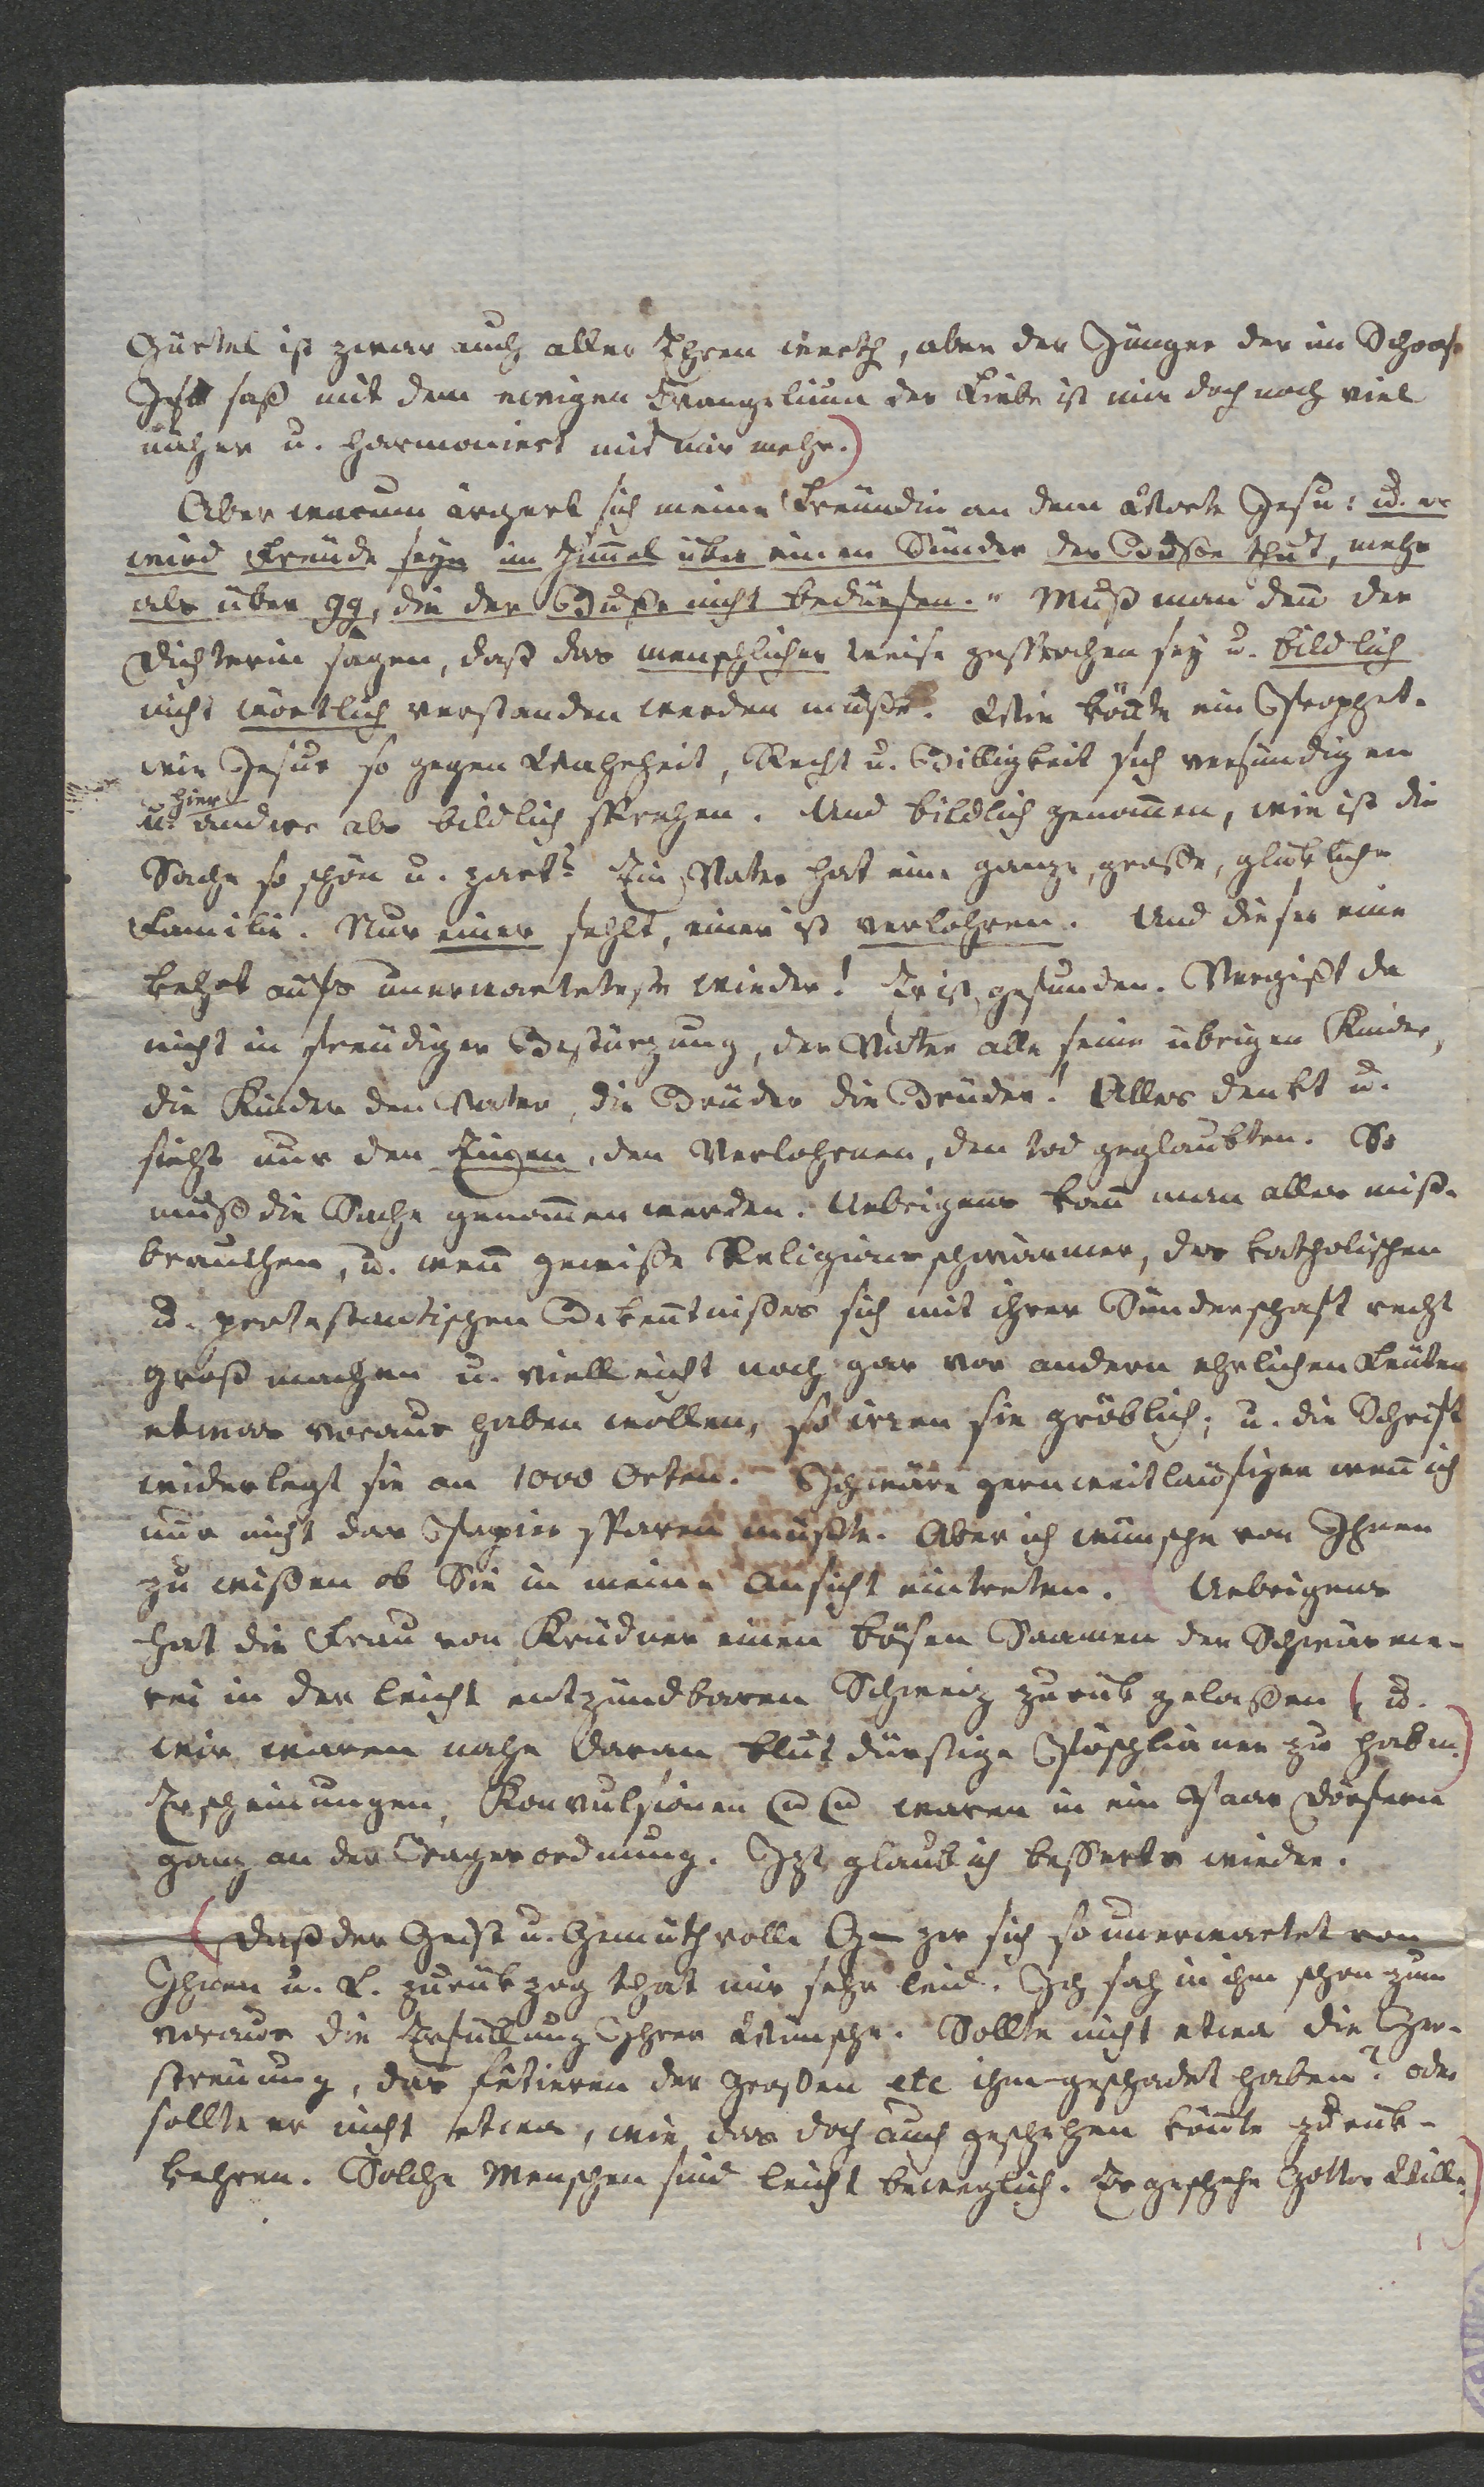 Gürtel ist zwar auch aller Ehren werth, aber der Jünger der im Schoose
Jesu saß mit dem ewigen Evangelium der Liebe ist mir doch noch viel
näher u. harmoniert mit mir mehr.)
Aber warum ärgert sich meine Freundin an dem Worte Jesu: u. es
wird Freude seyn im Him̅el über einen Sünder der Buße thut, mehr
als über 99, die der Buße nicht bedürfen." Muß man den̅ der
Dichterin sagen, daß das menschlicher Weise gesprochen sey u. bildlich
nicht wörtlich verstanden werden müße. Wie kön̅te ein Prophet
wie Jesus so gegen Wahrheit, Recht u. Billigkeit sich versündigen
hier
u. anders als bildlich sprechen. Und bildlich genom̅en, wie ist die
Sache so schön u. zart? Ein Vater hat eine ganze, große, glükliche
Familie. Nur einer fehlt, einer ist verlohren. Und dieser eine
kehrt aufs unerwarteteste wieder! Er ist gefunden. Vergißt da
nicht in freudiger Bestürzung, der Vater alle seine übrigen Kinder,
die Kinder den Vater, die Brüder die Brüder! Alles denkt u.
sieht nur den Einen, den Verlohrnen, den tod geglaubten. So
muß die Sache genom̅en werden. Uebrigens kan̅ man alles miß-
brauchen, u. wen̅ gewiße Religionsschwärmer, des katholischen
u. protestantischen Beken̅tnißes sich mit ihrer Sünderschaft recht
groß machen u. vielleicht noch gar vor andern ehrlichen Leuten
etwas voraus haben wollen, so irren sie gröblich; u. die Schrift
widerlegt sie an 1000 Orten. Ich wäre gern weitläufiger wen̅ ich
nur nicht das Papier sparen müßte. Aber ich wünsche von Ihnen
zu wißen ob Sie in meine Ansicht eintreten. Uebrigens
hat die Frau von Krüdner einen bösen Saamen der Schwärme-
rei in der leicht entzündbaren Schweiz zurük gelaßen (u.
wir waren nahe daran blutdürstige Pöschlianer zu haben.)
Erscheinungen, Konvulsionen waren in ein Paar Dörfern
ganz an der Tagesordnung. Izt glaub ich besserts wieder.
(Daß der Geist u. Gemüthvolle sich so unerwartet von
Ihnen u. L. zurükzog that mir sehr leid. Ich sah in ihm schon zum
voraus die Erfüllung Ihrer Wünsche. Sollte nicht etwa die Zer-
streuung, das fetieren der Großen etc ihm geschadet haben? oder
sollte er nicht etwa, wie das doch auch geschehen kön̅te zurük-
kehren. Solche Menschen sind leicht beweglich. Es geschehe Gottes Wille.)